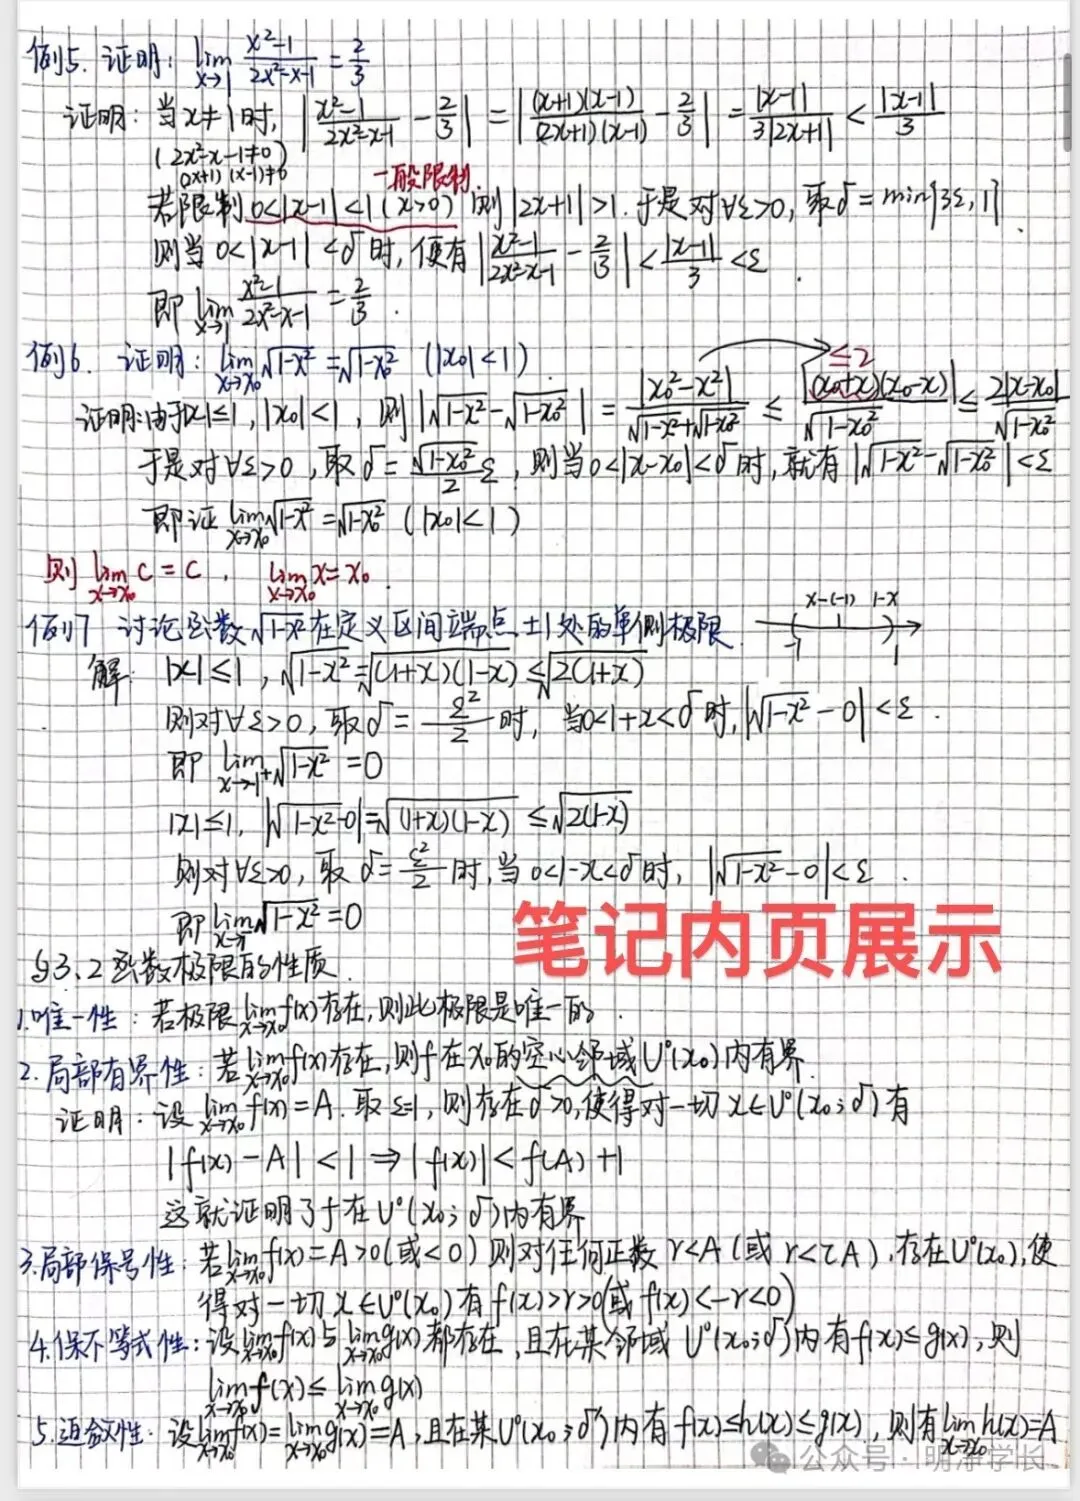 例5. 证明: lim x→1 (x²-1)/(2x²-x-1) = 2/3
证明: 当x≠1时, |(x²-1)/(2x²-x-1) - 2/3| = |(x+1)(x-1)/(2x+1)(x-1) - 2/3| = |x-1|/3|2x+1| < |x-1|/3
(2x²-x-1≠0)
(2x+1)(x-1)≠0
一般限制.
若限制 0<|x-1|<1 (x>0) 则 |2x+1|>1. 于是对∀ε>0, 取δ=min{3ε,1}
则当 0<|x-1|<δ时, 便有 |(x²-1)/(2x²-x-1) - 2/3| < |x-1|/3 < ε
即 lim x→1 (x²-1)/(2x²-x-1) = 2/3.
例6. 证明: lim x→x₀ √(1-x²) = √(1-x₀²) (|x₀|<1).
≤2
证明:由于|x|≤1, |x₀|<1, 则|√(1-x²) - √(1-x₀²)| = |x₀²-x²|/(√(1-x²)+√(1-x₀²)) ≤ |(x₀+x)(x₀-x)|/√(1-x₀²) ≤ 2|x-x₀|/√(1-x₀²)
于是对∀ε>0, 取δ= √(1-x₀²)/2 ε, 则当0<|x-x₀|<δ时, 就有|√(1-x²) - √(1-x₀²)|<ε
即证 lim x→x₀ √(1-x²) = √(1-x₀²) (|x₀|<1)
则 lim x→x₀ C = C, lim x→x₀ x = x₀.
例7 讨论函数√(1-x²)在定义区间端点±1处的单侧极限.
x-(-1) 1-x
-1 1
解: |x|≤1, √(1-x²) = √((1+x)(1-x)) ≤ √(2(1+x))
则对∀ε>0, 取δ= ε²/2 时, 当0<1+x<δ时, |√(1-x²) - 0|<ε.
即 lim x→-1⁺ √(1-x²) = 0
|x|≤1, |√(1-x²)-0| = √((1+x)(1-x)) ≤ √(2(1-x))
则对∀ε>0, 取δ= ε²/2 时, 当0<1-x<δ时, |√(1-x²) - 0|<ε.
即 lim x→1⁻ √(1-x²) = 0
笔记内页展示
§3.2 函数极限的性质.
1.唯一性: 若极限 lim x→x₀ f(x)存在, 则此极限是唯一的.
2.局部有界性: 若 lim x→x₀ f(x)存在, 则f在x₀的空心邻域U°(x₀)内有界.
证明: 设 lim x→x₀ f(x)=A. 取ε=1, 则存在δ>0, 使得对一切x∈U°(x₀;δ)有
|f(x)-A|<1 ⇒ |f(x)|<f(A)+1
这就证明了f在U°(x₀;δ)内有界
3.局部保号性: 若 lim x→x₀ f(x)=A>0(或<0) 则对任何正数r<A(或r<-A), 存在U°(x₀), 使
得对一切x∈U°(x₀)有f(x)>r>0(或f(x)<-r<0)
4.保不等式性: 设 lim x→x₀ f(x)与 lim x→x₀ g(x)都存在, 且在某邻域U°(x₀;δ')内有f(x)≤g(x), 则
lim x→x₀ f(x) ≤ lim x→x₀ g(x)
5.迫敛性: 设 lim x→x₀ f(x)= lim x→x₀ g(x)=A, 且在某U°(x₀;δ')内有f(x)≤h(x)≤g(x), 则有 lim x→x₀ h(x)=A
公众号·明净学长